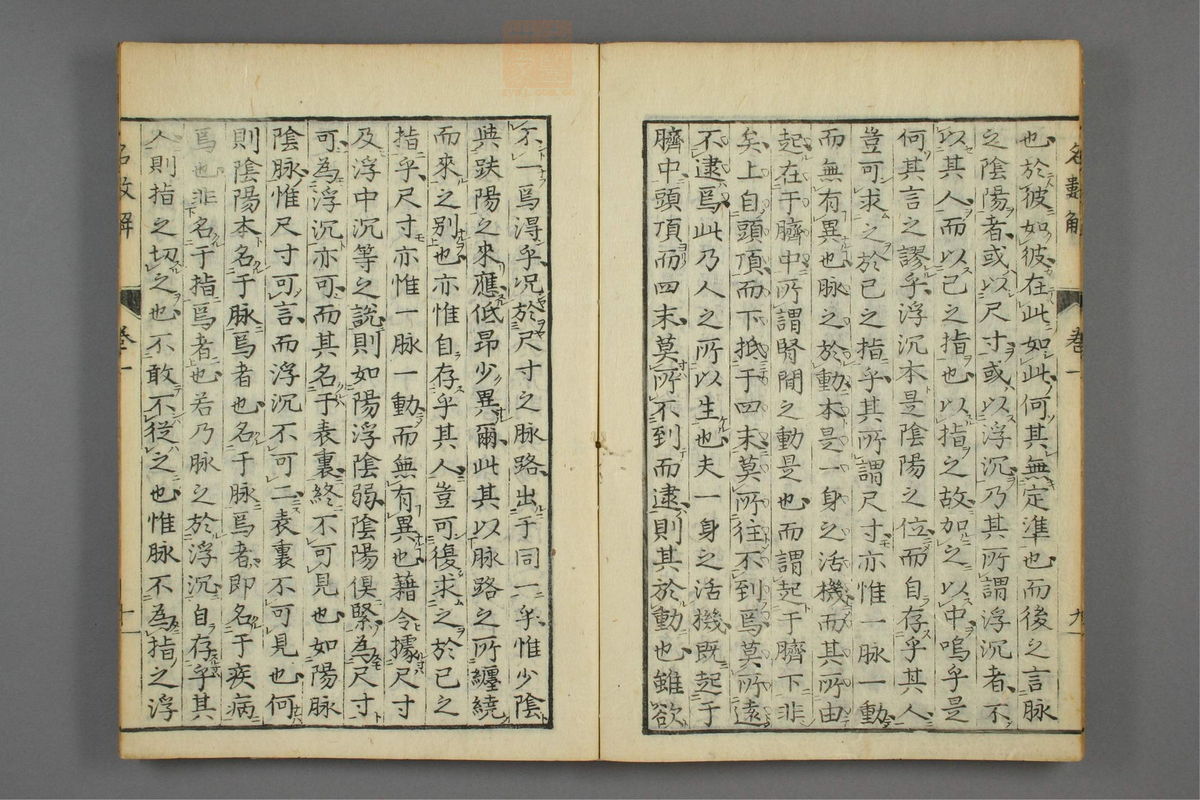 也於彼如彼在此如此何其無定準也而後之言脉
之陰陽者或以尺寸或以浮沉乃其所謂浮沉者不
以其人而以己之指也以指之故加之以中嗚乎是
何其言之謬乎浮沉本是陰陽之位而自存乎其人
豈可求之於己之指乎其所謂尺寸亦惟一脉一動
而無有異也脉之於動本是一身之活機而其所由
起在于臍中所謂腎間之動是也而謂起于臍下非
矣上自頭頂而下抵于四末莫所往不到焉莫所遠
不逮焉此乃人之所以生也夫一身之活機既起于
臍中頭頂而四末莫所不到而逮則其於動也雖欲
名數解 卷一 九
不一焉得乎况於尺寸之脉路出于同一乎惟少陰
與趺陽之來應低昂少異爾此其以脉路之所纏繞
而來之別也亦惟自存乎其人豈可復求之於己之
指乎尺寸亦惟一脉一動而無有異也藉令據尺寸
及浮中沉等之說則如陽浮陰弱陰陽俱緊為尺寸
可為浮沉亦可而其名于表裏終不可見也如陽脉
陰脉惟尺寸可言而浮沉不可二表裏不可見也何
則陰陽本名于脉焉者也名于脉焉者即名于疾病
焉也非名于指焉者也若乃脉之於浮沉自存乎其
人則指之切之也不敢不從之也惟脉不為指之浮
名數解 卷一 十